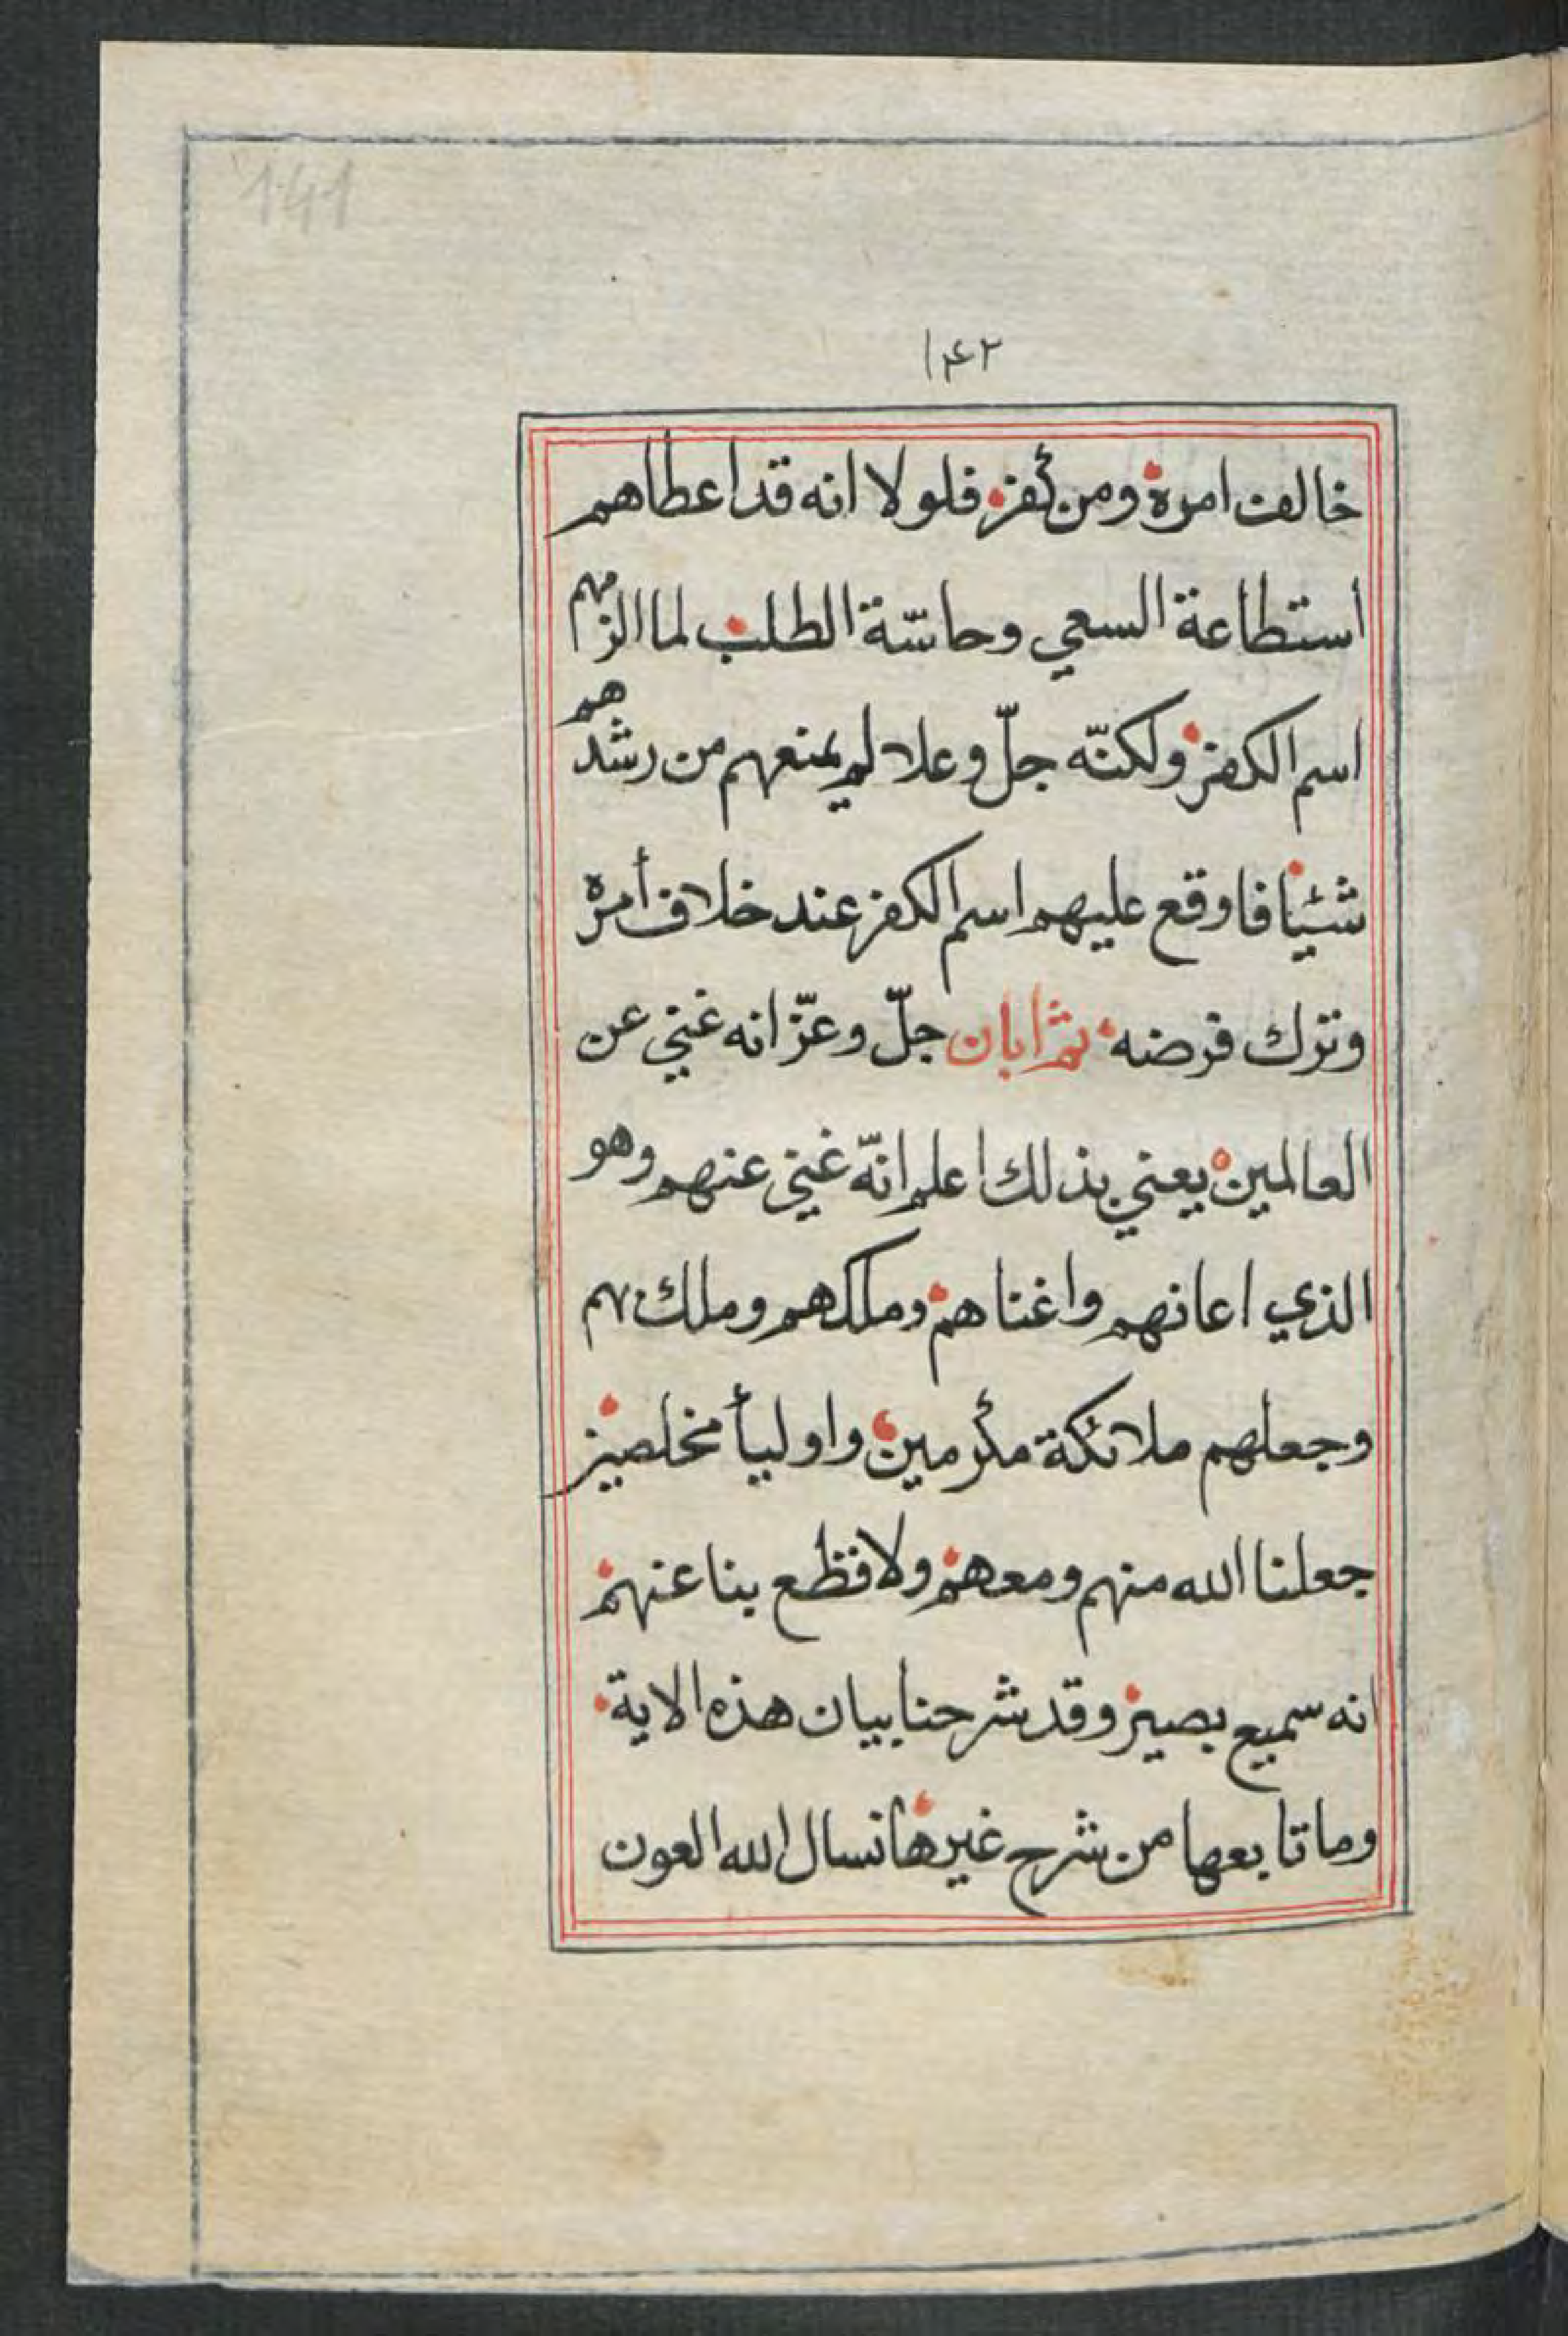 141
١٤٢
خالف امره ومن كفر فلولا انه قد اعطاهم
أستطاعة السعي وحاسّة الطلب لما الزمهم
اسم الكفر ولكنّه جلّ وعلا لم يمنعهم من رشدهم
شئيا فاوقع عليهم اسم الكفر عند خلاف أمره
وترك فرضه ثم ابان جلّ وعزّ انه غني عن
العالمين يعني بذلك اعلم انّه غني عنهم وهو
الذي اعانهم واغناهم وملكهم وملك بهم
وجعلهم ملائكة مكرمين واوليأ مخلصين
جعلنا الله منهم ومعهم ولا قطع بنا عنهم
انه سميع بصير وقد شرحنا بيان هذه الاية
وما تابعها من شرح غيرها نسال الله العون